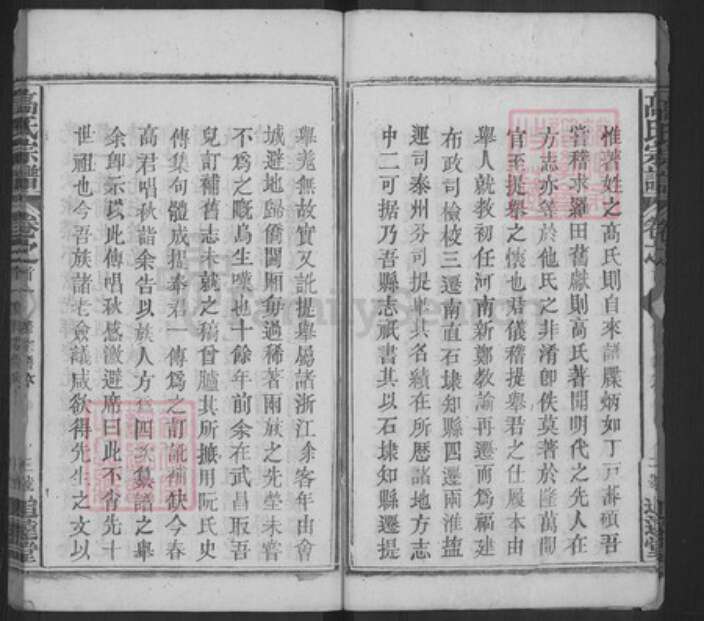 惟著姓之高氏則自來譜牒炳如丁戸蕃碩吾
嘗稽求羅田舊獻則高氏著聞明代之先人在
方志亦等於他氏之非淆卽佚莫著於隆萬閒
官至提舉之懐也君儀稽提舉君之仕履本由
舉人就教初任河南新鄭教諭再遷而爲福建
布政司檢校三遷南直石埭知縣四遷兩淮鹽
運司泰州分司提舉其名績在所歴諸地方志
中二可據乃吾縣志祇書其以石埭知縣遷提
舉羗無故實又訛提舉屬諸浙江余客年由會
城避地歸僑閭廂每過稀著兩族之先塋未嘗
不爲之慨爲生嘆也十餘年前余在武昌取吾
兒訂補舊志未就之稿曾臚其所摭用阮氏史
傳集句體成提奉君一傳爲之訂訛補缺今春
高君唱秋詣余告以族人方爲四次纂譜之舉
余卽示以此傳唱秋感激避席曰此不肖先十
世祖也今吾族諸老僉議咸欲得先生之文以
高氏宗譜
卷之首
三
追遠堂